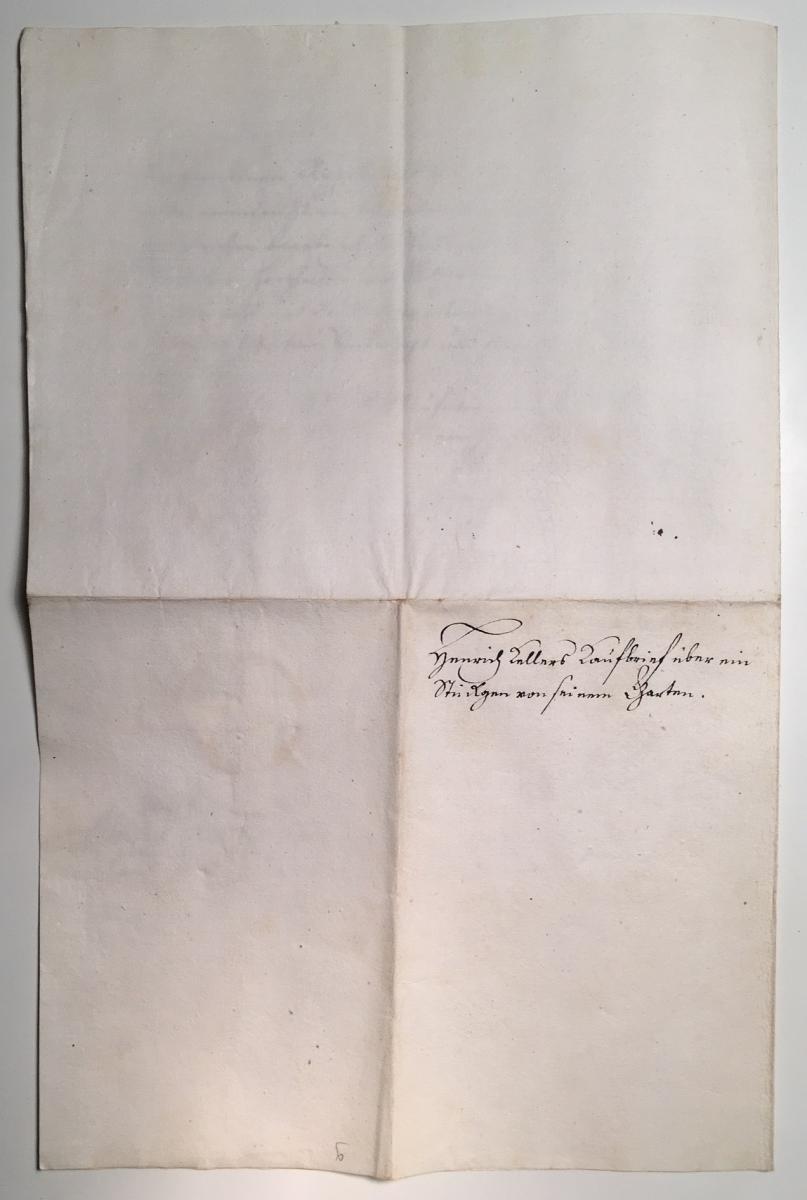 Henrich Kellers Kaufbrief über ein
Stückgen von seinem Garten.